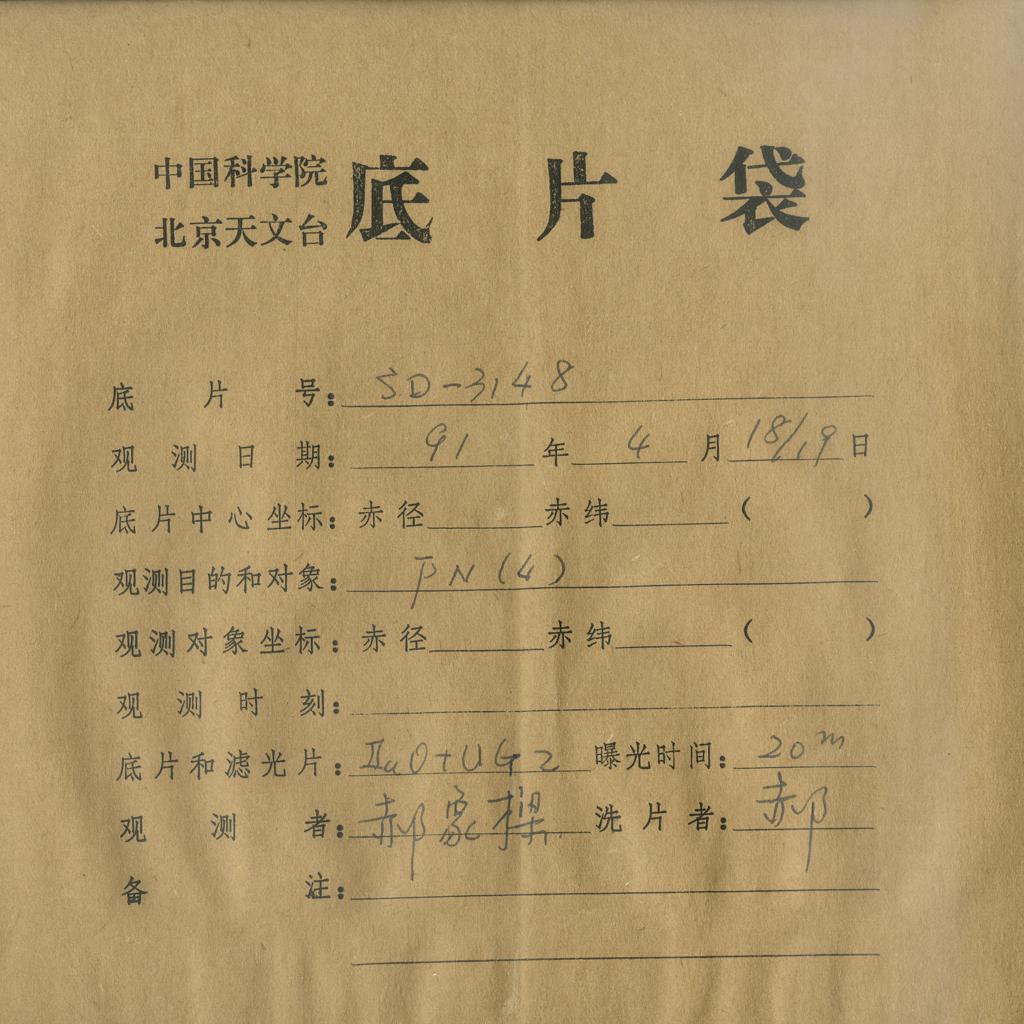 中国科学院
北京天文台
底片袋
底片号：SD-3148
观测日期：91年4月18/19日
底片中心坐标：赤径 赤纬 （ ）
观测目的和对象：PN(4)
观测对象坐标：赤径 赤纬 （ ）
观测时刻：
底片和滤光片：IIaO+UG2 曝光时间：20m
观测者：郝象樑 洗片者：郝
备注：